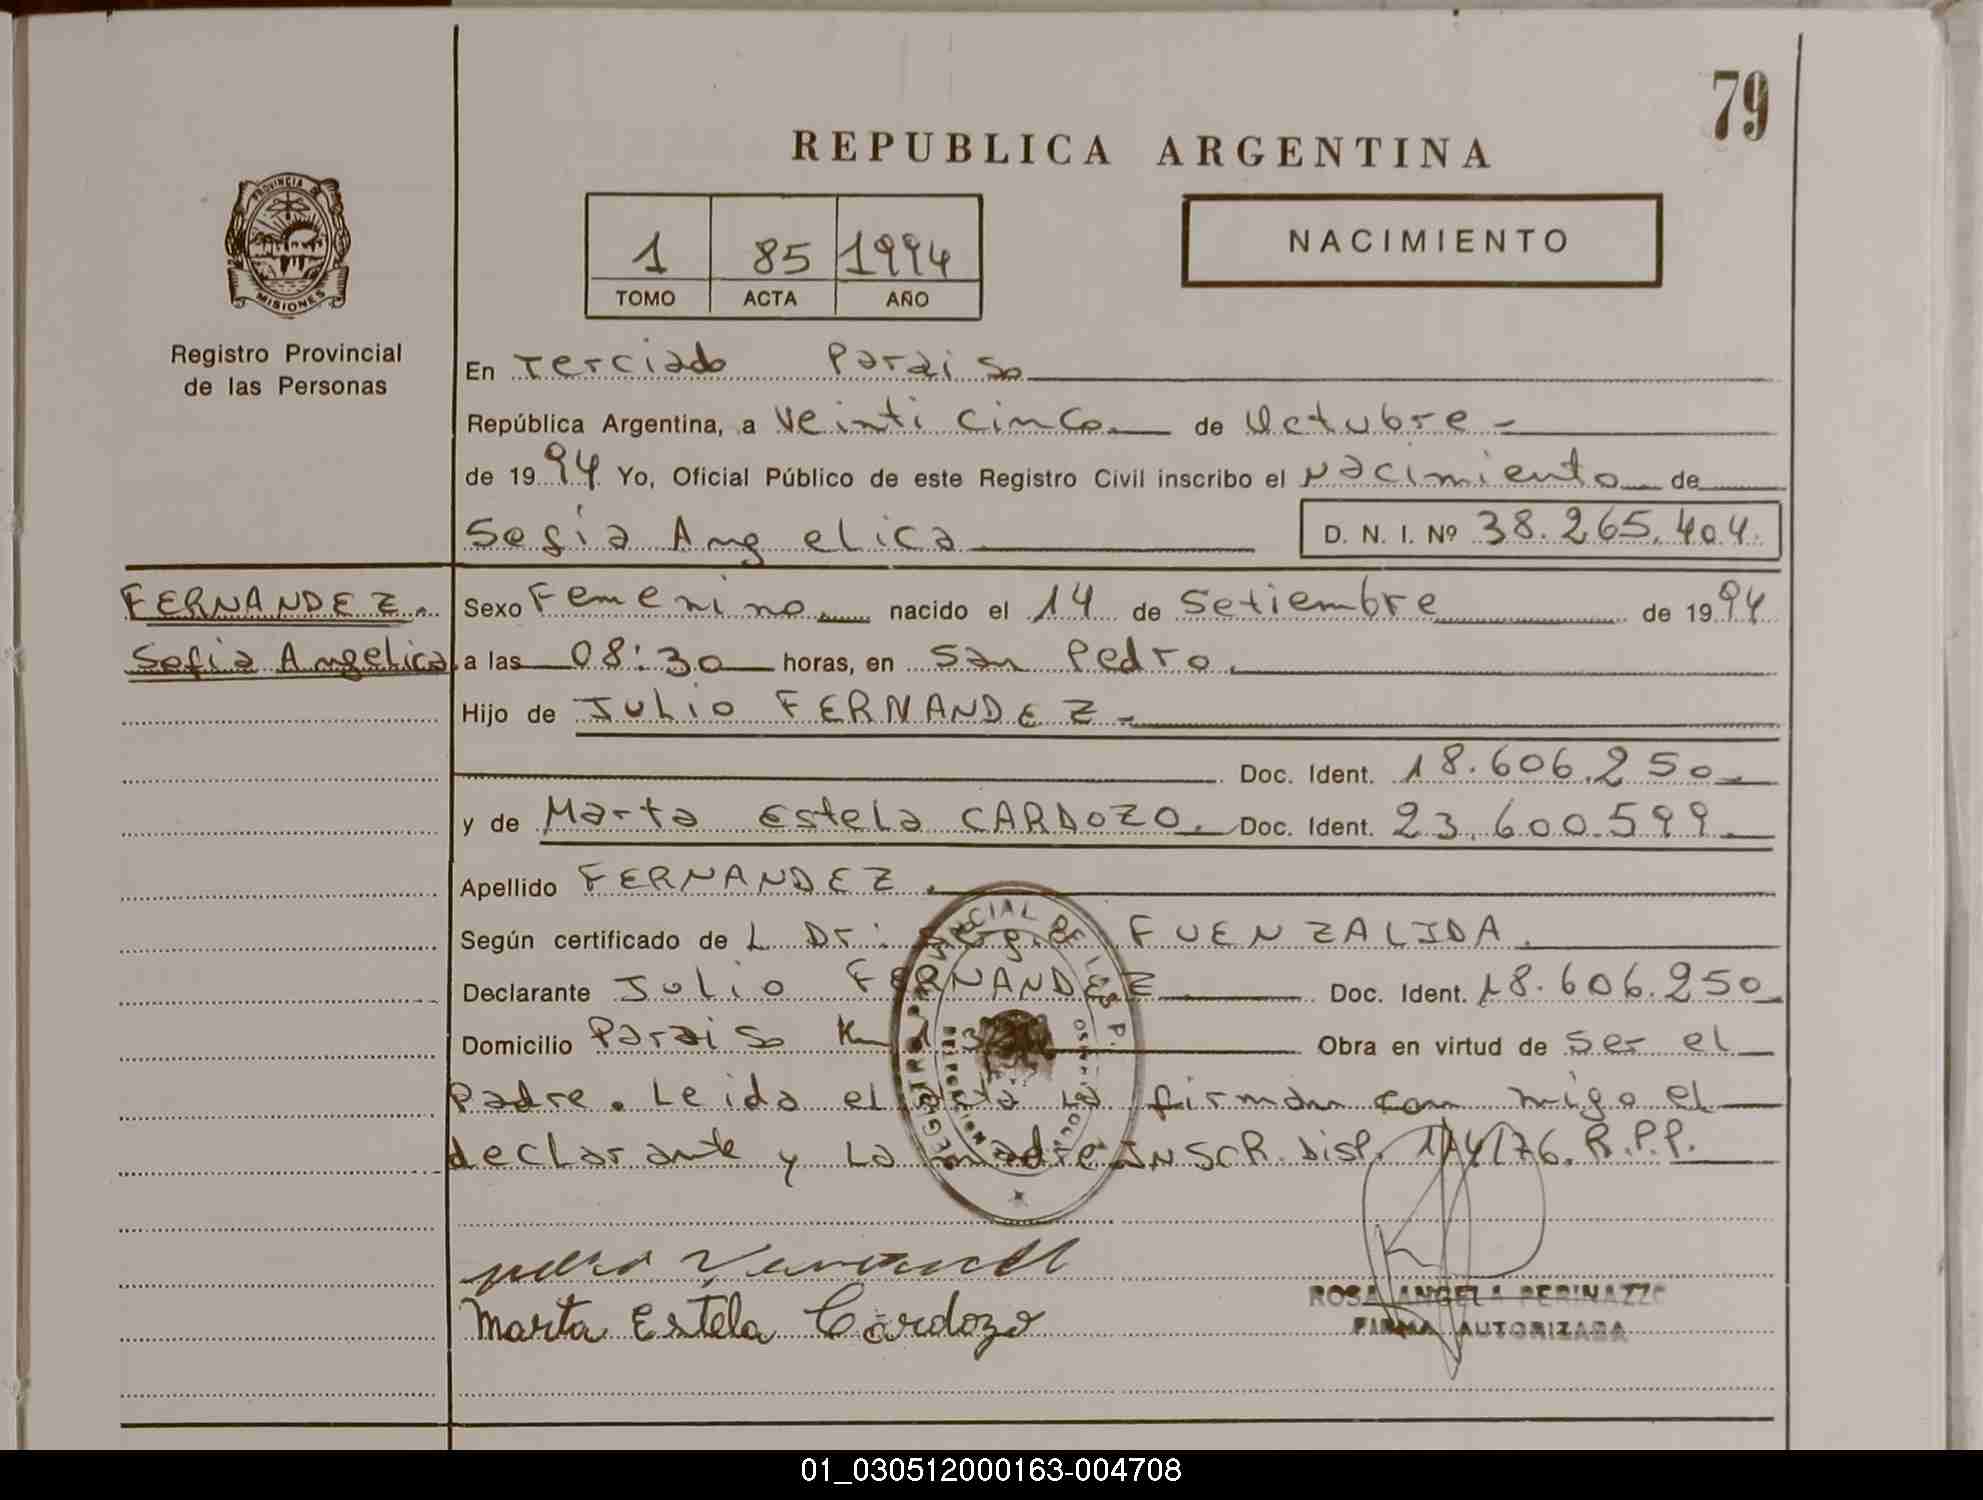 79
REPUBLICA ARGENTINA
PROVINCIA DE
MISIONES
Registro Provincial
de las Personas
1 85 1994
TOMO ACTA AÑO
NACIMIENTO
En Terciado Paraiso
República Argentina, a Veinti cinco de Octubre
de 1994 Yo, Oficial Público de este Registro Civil inscribo el Nacimiento de
Sofia Angelica D. N. I. Nº 38.265.404.
FERNANDEZ.
Sofia Angelica
Sexo Femenino nacido el 14 de Setiembre de 1994
a las 08:30 horas, en San Pedro.
Hijo de Julio FERNANDEZ
Doc. Ident. 18.606.250
y de Marta Estela CARDOZO. Doc. Ident. 23.600.599
Apellido FERNANDEZ.
Según certificado de L Dr: FUENZALIDA.
Declarante Julio FERNANDEZ Doc. Ident. 18.606.250
Domicilio Paraiso Km Obra en virtud de ser el
Padre. Leida el acta la firman con migo el
declarante y la madre INSCR. Disp. 114/76. R.P.P.
Marta Estela Cardozo
ROSA ANGELA PERINAZZO
FIRMA AUTORIZADA
01_030512000163-004708